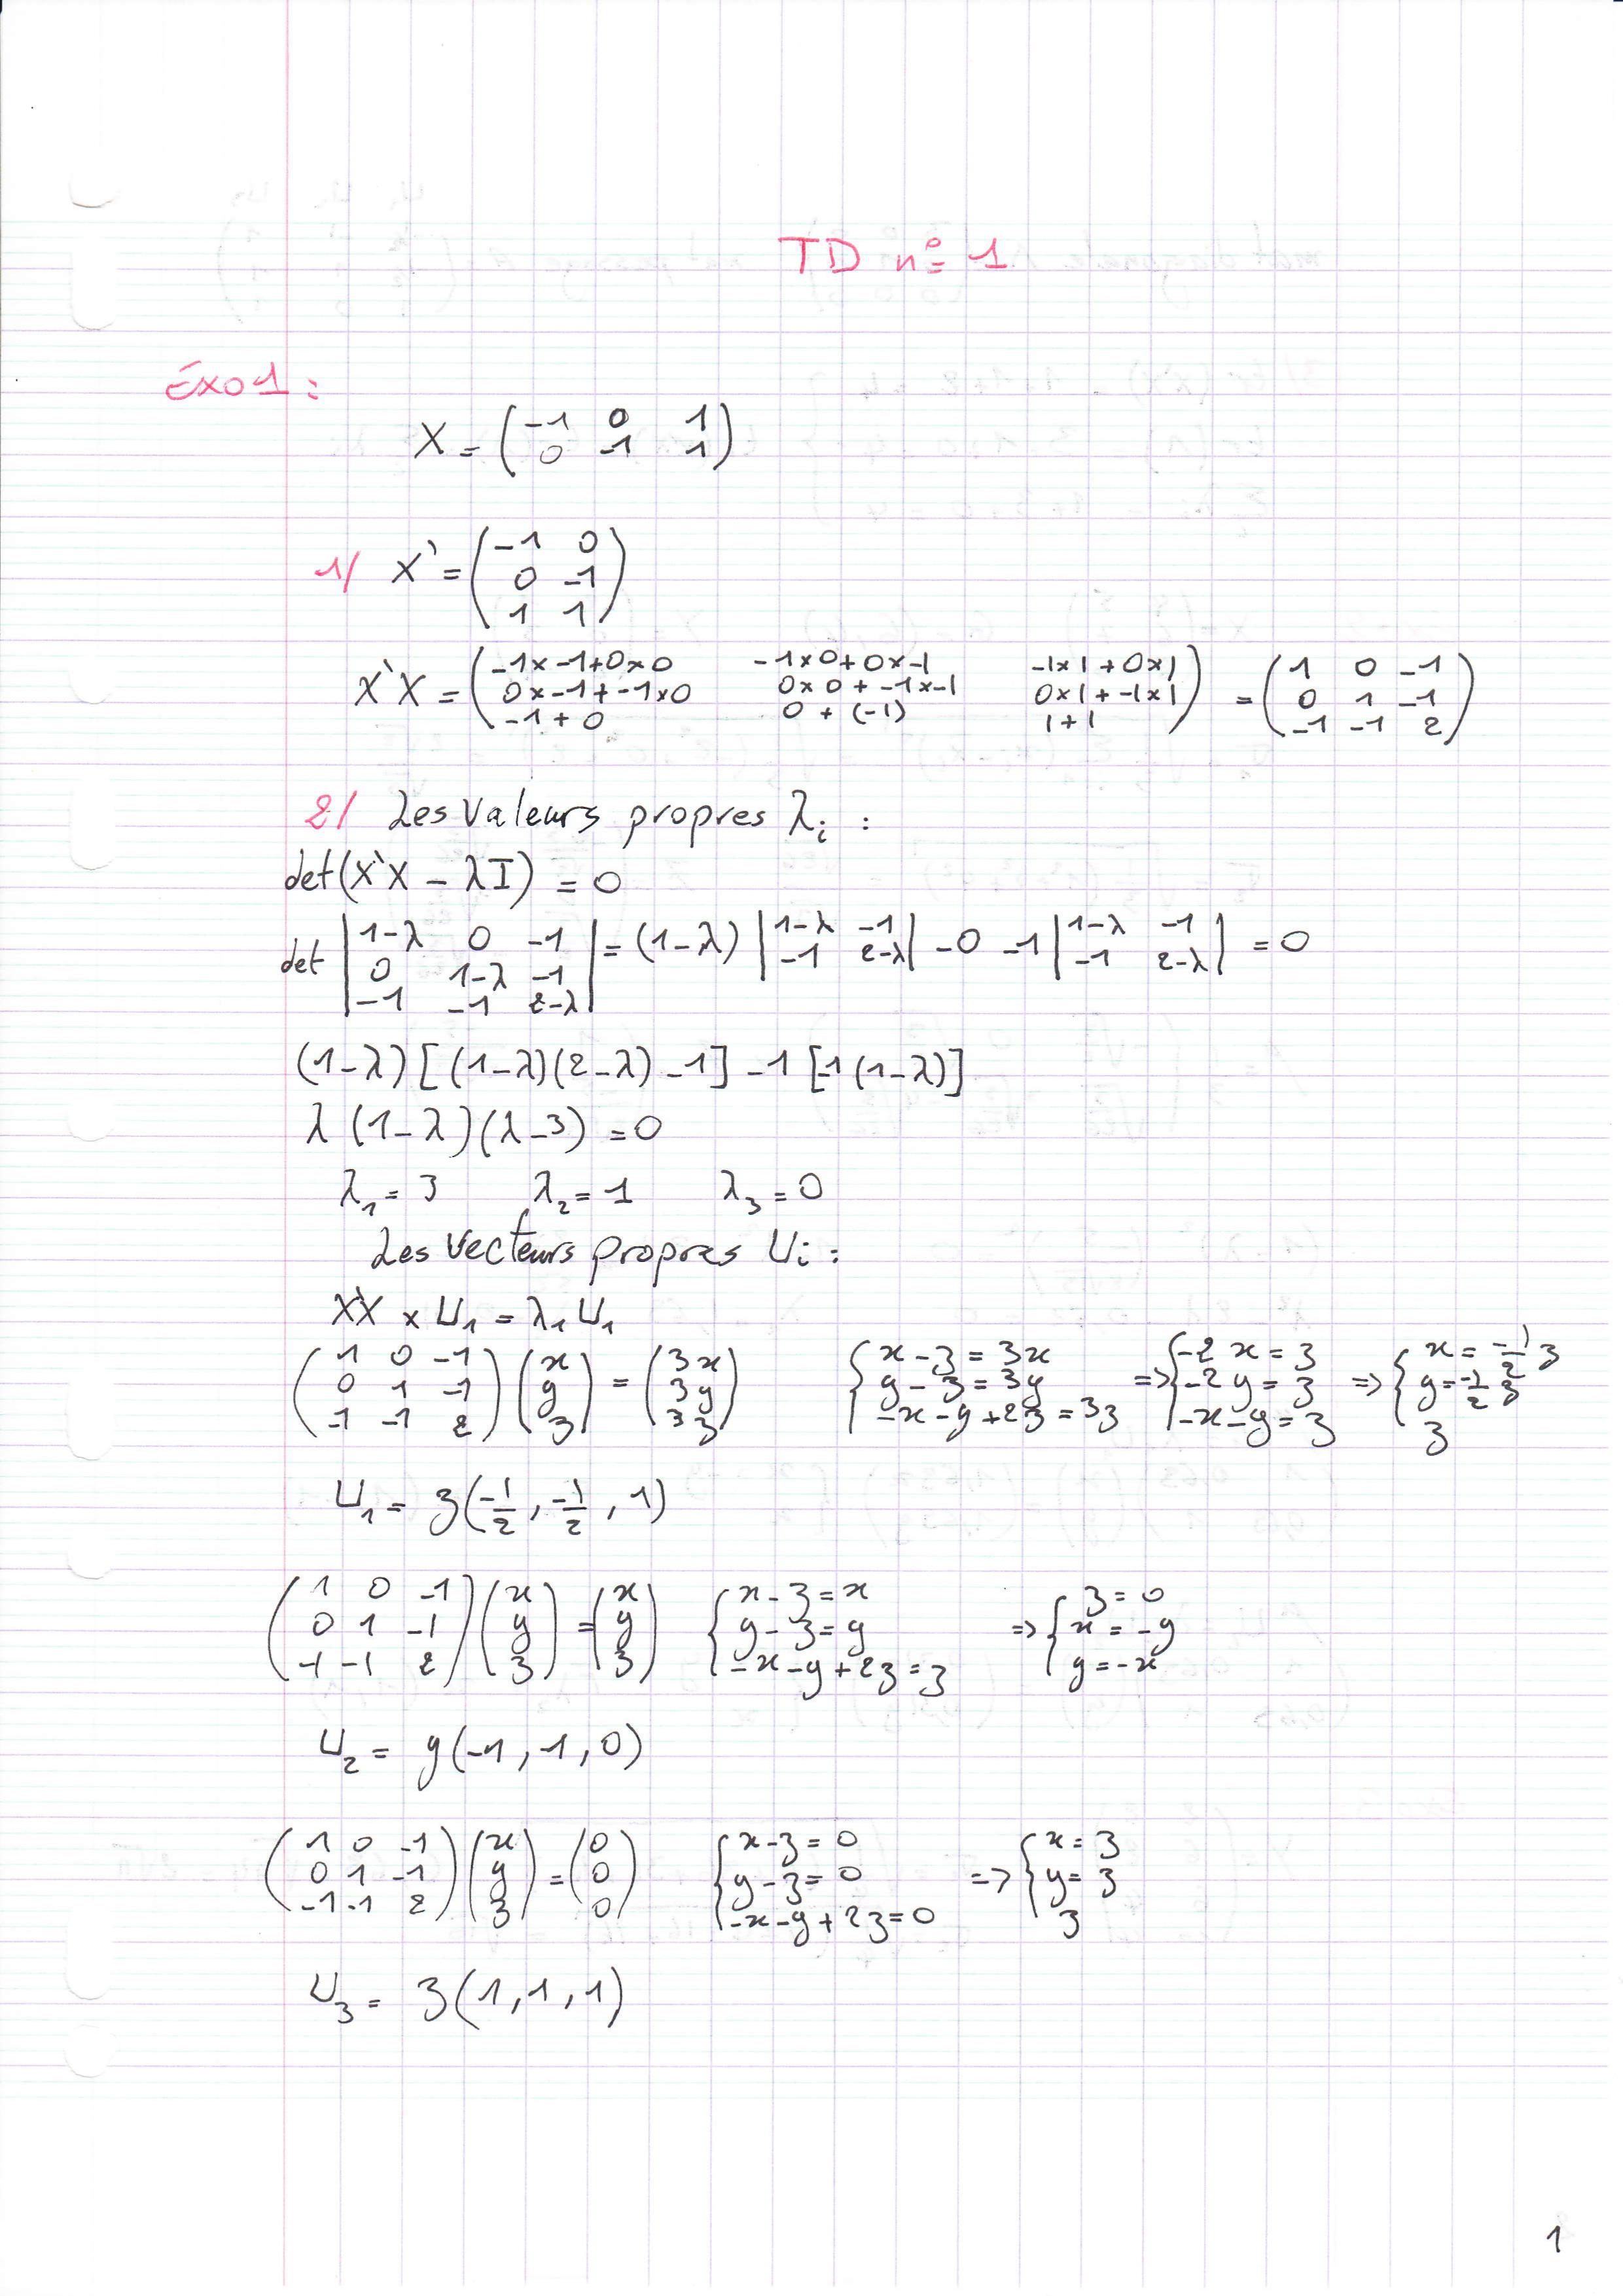 TD n° 1
Exo 1 :
X = (-1 0 1
0 -1 1)
1/ X' = (-1 0
0 -1
1 1)
X'X = (-1x-1+0x0 -1x0+0x-1 -1x1+0x1
0x-1+-1x0 0x0+-1x-1 0x1+-1x1
-1+0 0+(-1) 1+1) = (1 0 -1
0 1 -1
-1 -1 2)
2/ Les Valeurs propres λi :
det(X'X - λI) = 0
det |1-λ 0 -1
0 1-λ -1
-1 -1 2-λ| = (1-λ) |1-λ -1
-1 2-λ| -0 -1 |1-λ -1
-1 2-λ| = 0
(1-λ)[(1-λ)(2-λ)-1] -1[-1(1-λ)]
λ(1-λ)(λ-3) = 0
λ1 = 3 λ2 = 1 λ3 = 0
Les Vecteurs propres Ui :
X'X x U1 = λ1 U1
(1 0 -1
0 1 -1
-1 -1 2) (x
y
z) = (3x
3y
3z) {x-z = 3x
y-z = 3y
-x-y+2z = 3z => {-2x = z
-2y = z
-x-y = z => {x = -1/2 z
y = -1/2 z
z
U1 = z(-1/2, -1/2, 1)
(1 0 -1
0 1 -1
-1 -1 2) (x
y
z) = (x
y
z) {x-z = x
y-z = y
-x-y+2z = z => {z = 0
x = -y
y = -x
U2 = y(-1, 1, 0)
(1 0 -1
0 1 -1
-1 -1 2) (x
y
z) = (0
0
0) {x-z = 0
y-z = 0
-x-y+2z = 0 => {x = z
y = z
z
U3 = z(1, 1, 1)
1